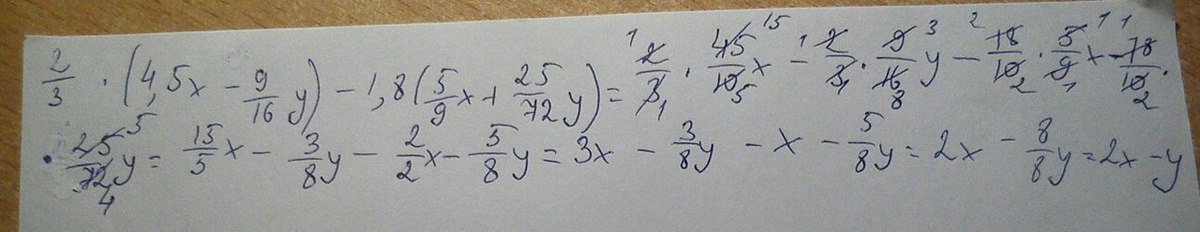 2/3 · (4,5x - 9/16 y) - 1,8(5/9 x + 25/72 y) = 2/3 · 45/10 x - 2/3 · 9/16 y - 18/10 · 5/9 x - 18/10 ·
· 25/72 y = 15/5 x - 3/8 y - 2/2 x - 5/8 y = 3x - 3/8 y - x - 5/8 y = 2x - 8/8 y = 2x - y